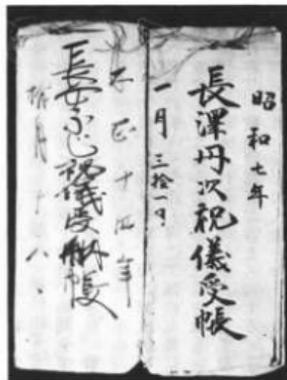 昭和七年
長澤丹次祝儀受帳
一月三拾一日
大正十四年
長女ふじ祝儀受納帳
月十八